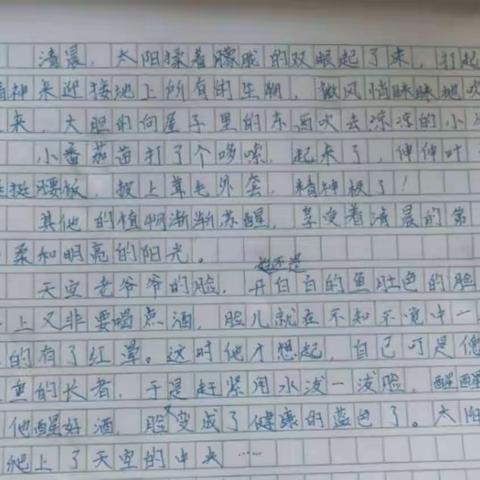 清晨，太阳揉着朦胧的双眼起了来，打起
精神来迎接地上所有的生物，微风悄眯眯地吹
来，大胆的向屋子里的东西吹去凉凉的小
小番茄苗打了个哆嗦，起来了，伸伸叶
挺挺腰板，披上茸毛外套，精神极了！
其他的植物渐渐苏醒，享受着清晨的第
柔和明亮的阳光。
天空老爷爷的脸，开白白的鱼肚色的脸
上又非要喝点酒，脸儿就在不知不觉中一
的有了红晕。这时他才想起，自己可是德
重的长者，于是赶紧用水泼一泼脸，醒醒
他醒好酒，脸变成了健康的蓝色了。太阳
爬上了天空的中央……